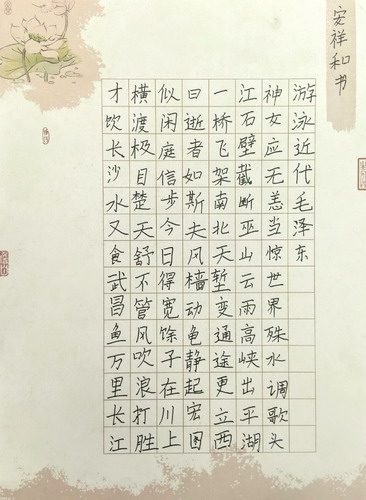 才饮长沙水又食武昌鱼万里长江
横渡极目楚天舒不管风吹浪打胜
似闲庭信步今日得宽馀子在川上
曰逝者如斯夫风樯动龟静起宏图
一桥飞架南北天堑变通途更立西
江石壁截断巫山云雨高峡出平湖
神女应无恙当惊世界殊水调歌头
游泳近代毛泽东
安祥和书